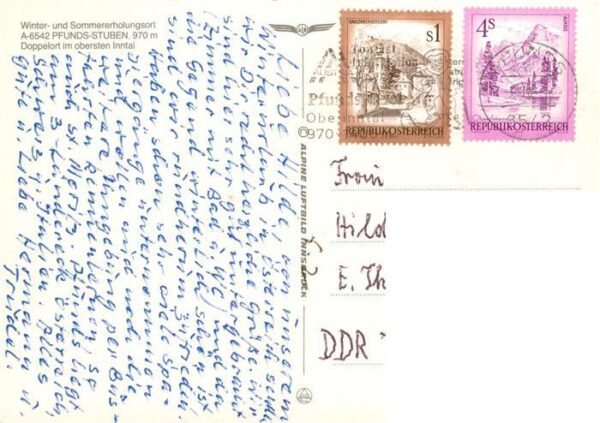 Winter- und Sommererholungsort
A-6542 PFUNDS-STUBEN, 970 m
Doppelort im obersten Inntal
Liebe Hilde! Von unserem
Winterurlaub in Österreich senden
wir Dir recht herzliche Grüße. Wir
sind hier sehr gut untergebracht
(Zimmer mit Bad u. WC) und da
die Gegend wunderbar schön ist,
sind wir rundherum zufrieden.
Haben schon sehr viele Spa-
ziergänge unternommen
und wollen nun noch die
weitere Umgebung per Bus
etwas kennenlernen, so
auch St. Moritz. Pfunds liegt
am 3 Ländereck Österreich,
Schweiz u. Italien. Alles
Gute u. Liebe Hermann u.
Trudel.
ALPINE LUFTBILD INNSBRUCK
S1
REPUBLIK ÖSTERREICH
4S
ALMSEE
REPUBLIK ÖSTERREICH
Pfunds
Oberinntal
970
Hild
E. Th
DDR